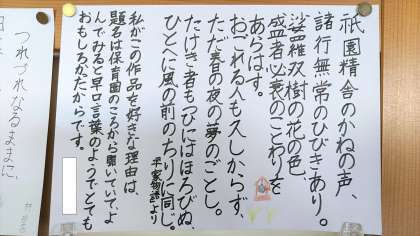 祇園精舎のかねの声、
諸行無常のひびきあり。
娑羅双樹の花の色、
盛者必衰のことわりを
あらはす。
おごれる人も久しからず、
ただ春の夜の夢のごとし。
たけき者もつひにはほろびぬ、
ひとへに風の前のちりに同じ。
平家物語より
私がこの作品を好きな理由は、
題名は保育園のころから聞いていて、よ
んでみると早口言葉のようでとても
おもしろかたからです。
つれづれなるままに、